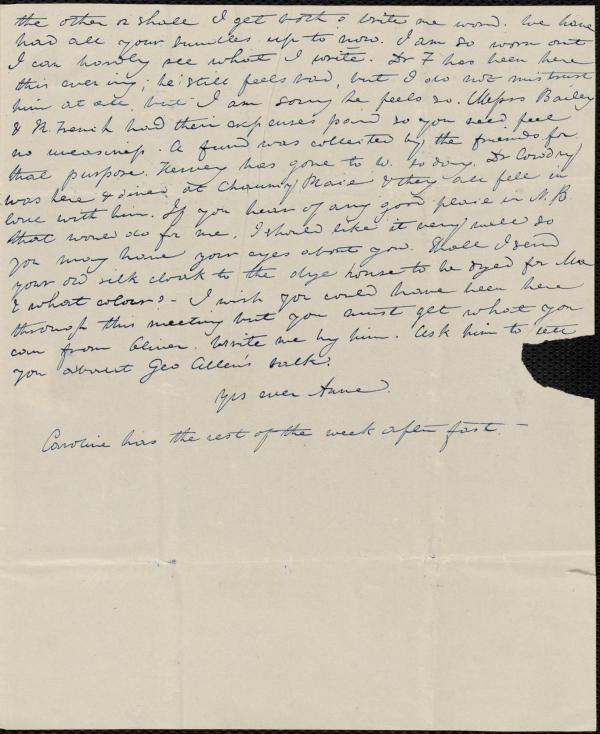 the other or shall I get both? Write me word. We have
had all your bundles up to now. I am so worn out
I can hardly see what I write. Dr F has been here
this evening; he still feels bad, but I do not mistrust
him at all, but I am sorry he feels so. Messrs Bailey
& N. French had their expenses paid so you need feel
no uneasiness. A fund was collected by the friends for
that purpose. Hervey has gone to W. to day. Dr Cowdry
was here & dined at Chauncy Place & they all fell in
love with him. If you hear of any good place in N. B
that would do for me, I should like it very well so
you may have your eyes about you. Shall I send
your old silk cloak to the dye house to be dyed for Ma
& what colour? - I wish you could have been here
through this meeting but you must get what you
can from Oliver. Write me by him. Ask him to tell
you about Geo Allen's talk.
Yrs ever Anne.
Caroline has the rest of the week after fast. -